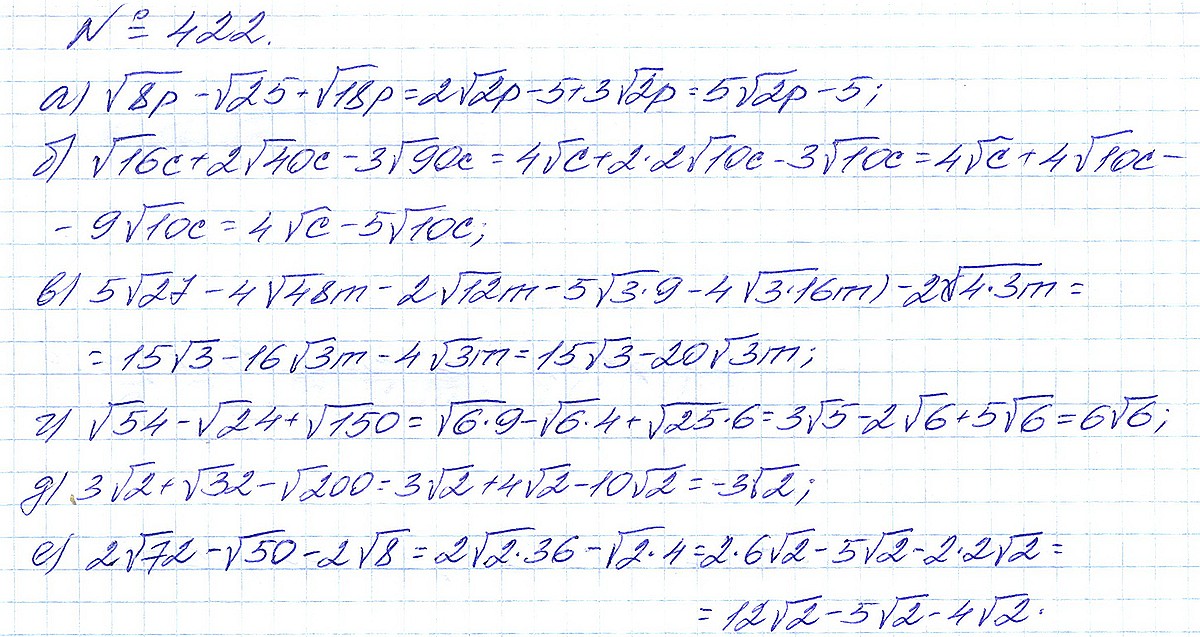 № 422.
а) √8p - √25 + √18p = 2√2p - 5 + 3√2p = 5√2p - 5;
б) √16c + 2√40c - 3√90c = 4√c + 2·2√10c - 3√10c = 4√c + 4√10c -
- 9√10c = 4√c - 5√10c;
в) 5√27 - 4√48m - 2√12m - 5√3·9 - 4√3·16m) - 2√4·3m =
= 15√3 - 16√3m - 4√3m = 15√3 - 20√3m;
г) √54 - √24 + √150 = √6·9 - √6·4 + √25·6 = 3√5 - 2√6 + 5√6 = 6√6;
д) 3√2 + √32 - √200 = 3√2 + 4√2 - 10√2 = -3√2;
е) 2√72 - √50 - 2√8 = 2√2·36 - √2·4 = 2·6√2 - 5√2 - 2·2√2 =
= 12√2 - 5√2 - 4√2.